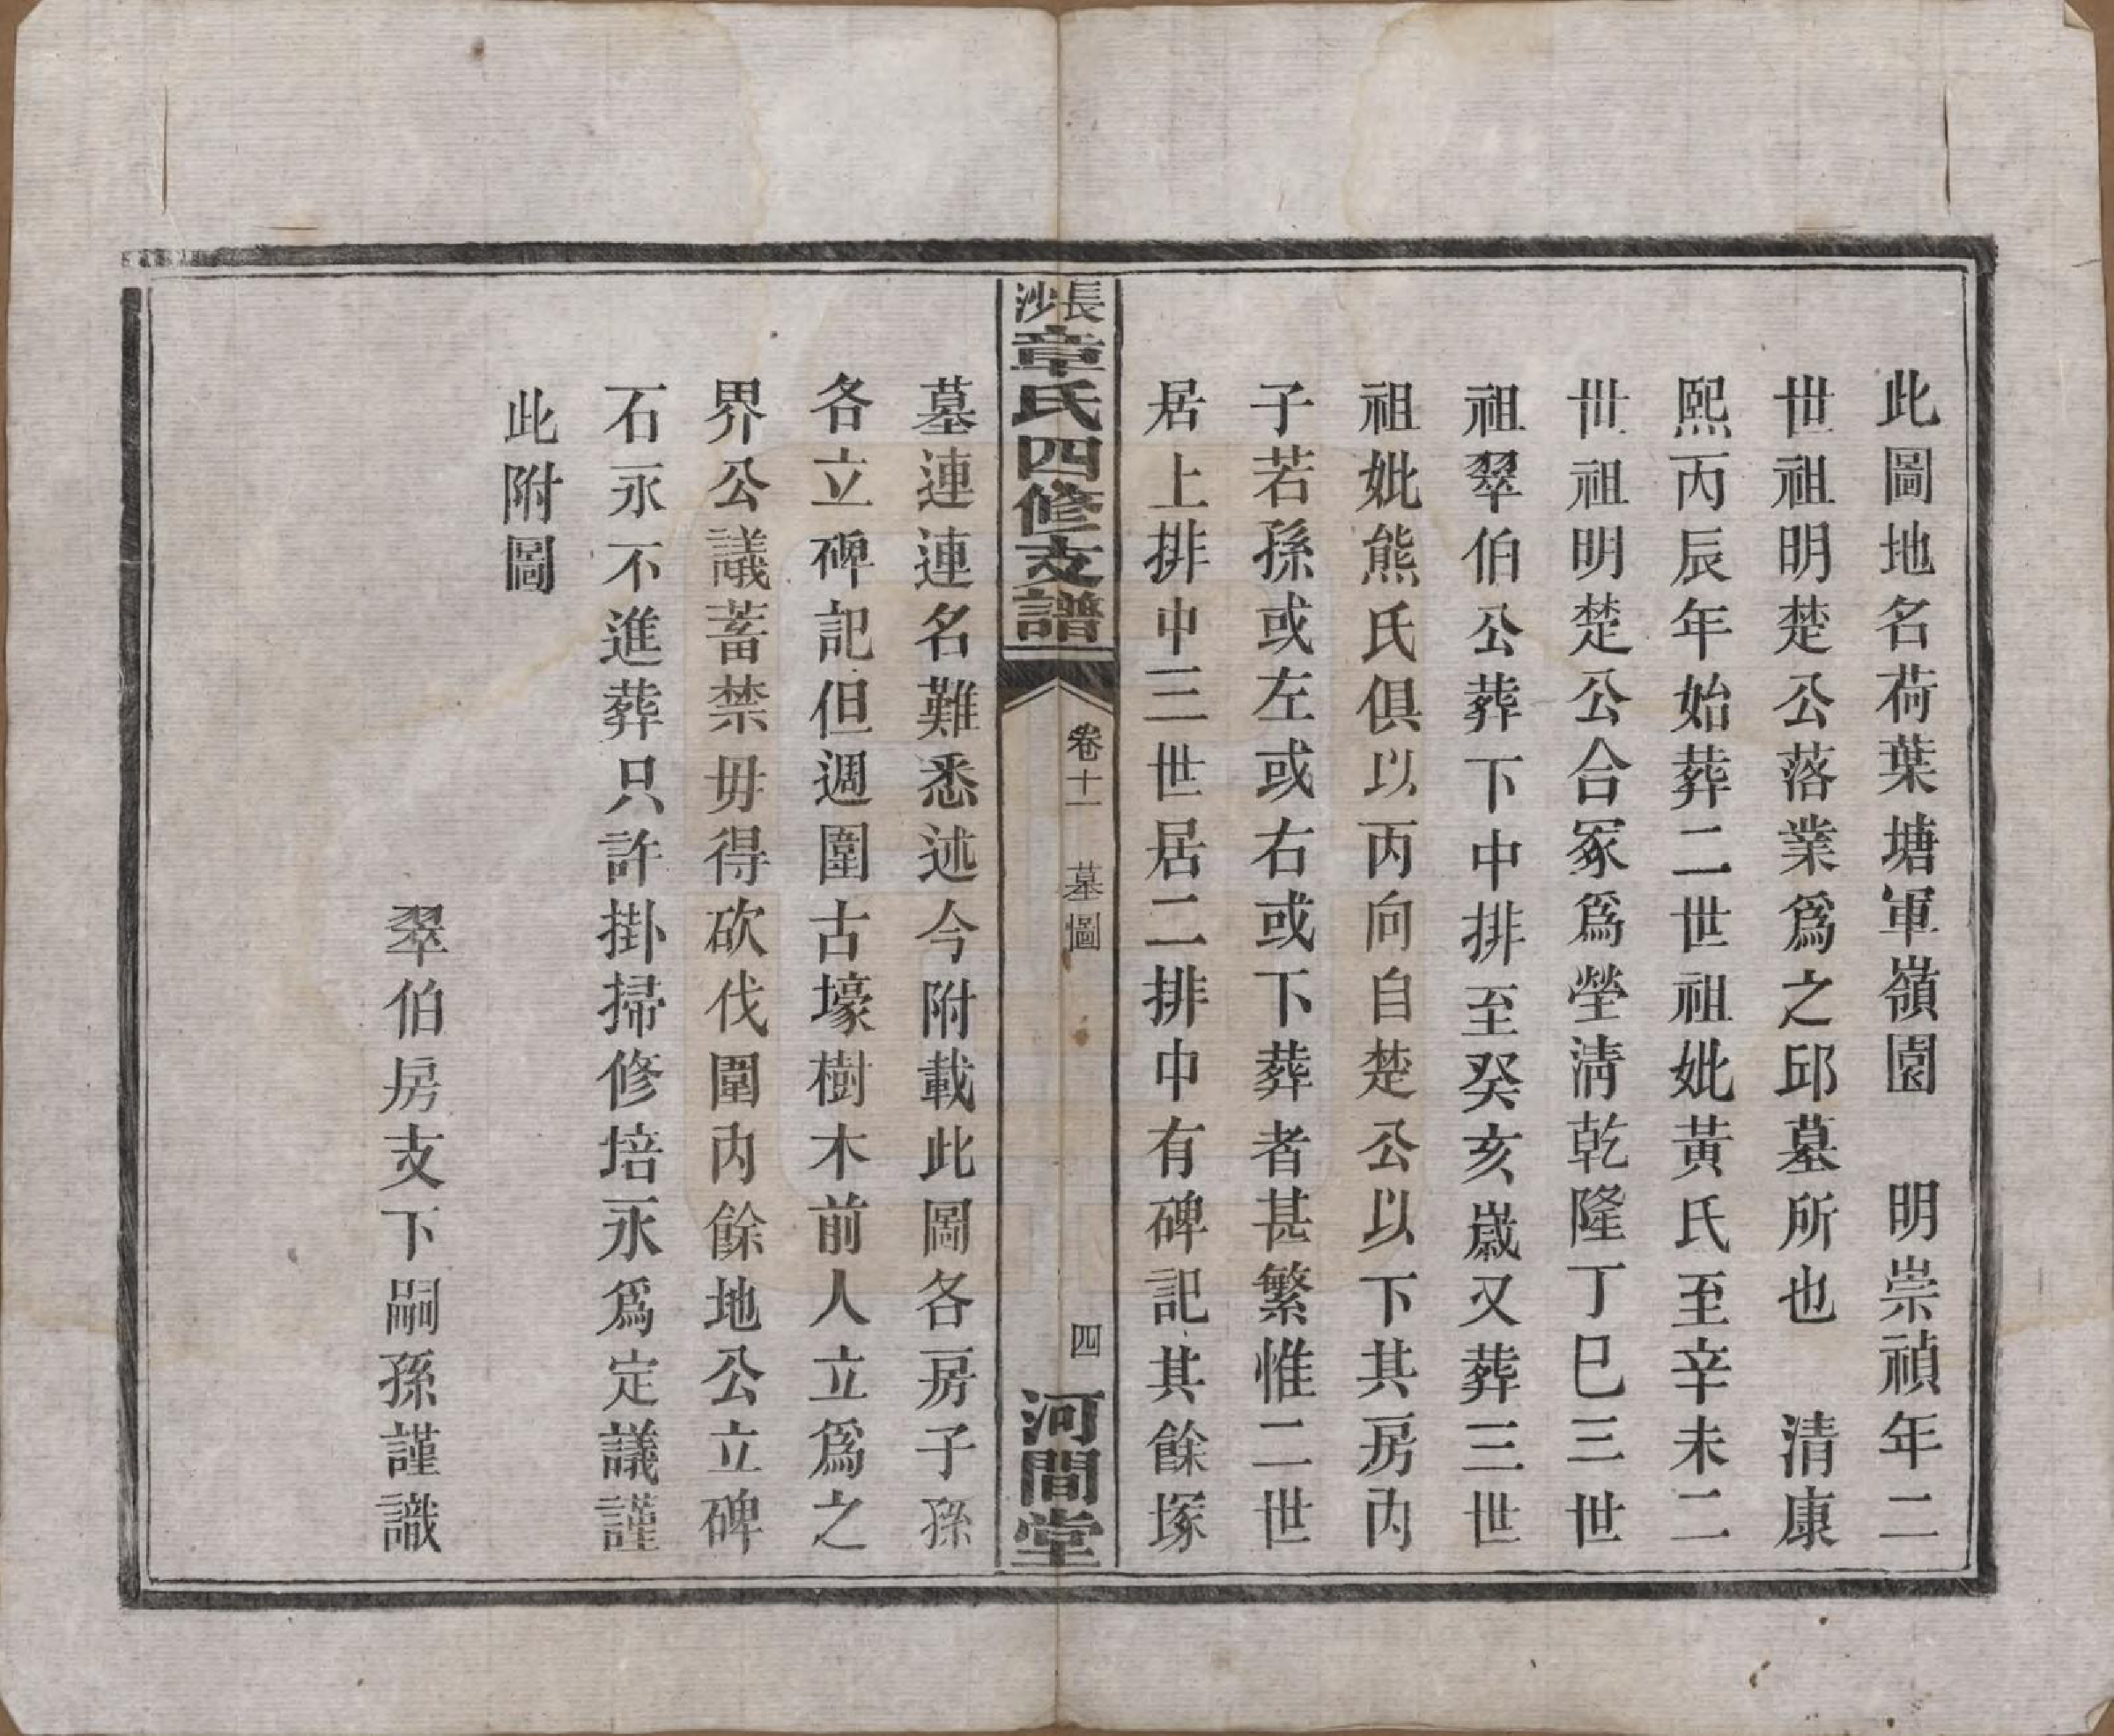 此圖地名荷葉塘軍嶺園　明崇禎年二
世祖明楚公落業爲之邱墓所也　清康
熙丙辰年始葬二世祖妣黃氏至辛未二
世祖明楚公合冢爲塋淸乾隆丁巳三世
祖翠伯公葬下中排至癸亥嵗又葬三世
祖妣熊氏俱以丙向自楚公以下其房內
子若孫或左或右或下葬者甚繁惟二世
居上排中三世居二排中有碑記其餘塚
長沙章氏四修支譜
卷十一　墓圖
四
河間堂
墓連連名難悉述今附載此圖各房子孫
各立碑記但週圍古壕樹木前人立爲之
界公議蓄禁毋得砍伐圍內餘地公立碑
石永不進葬只許掛掃修培永爲定議謹
此附圖
翠伯房支下嗣孫謹識